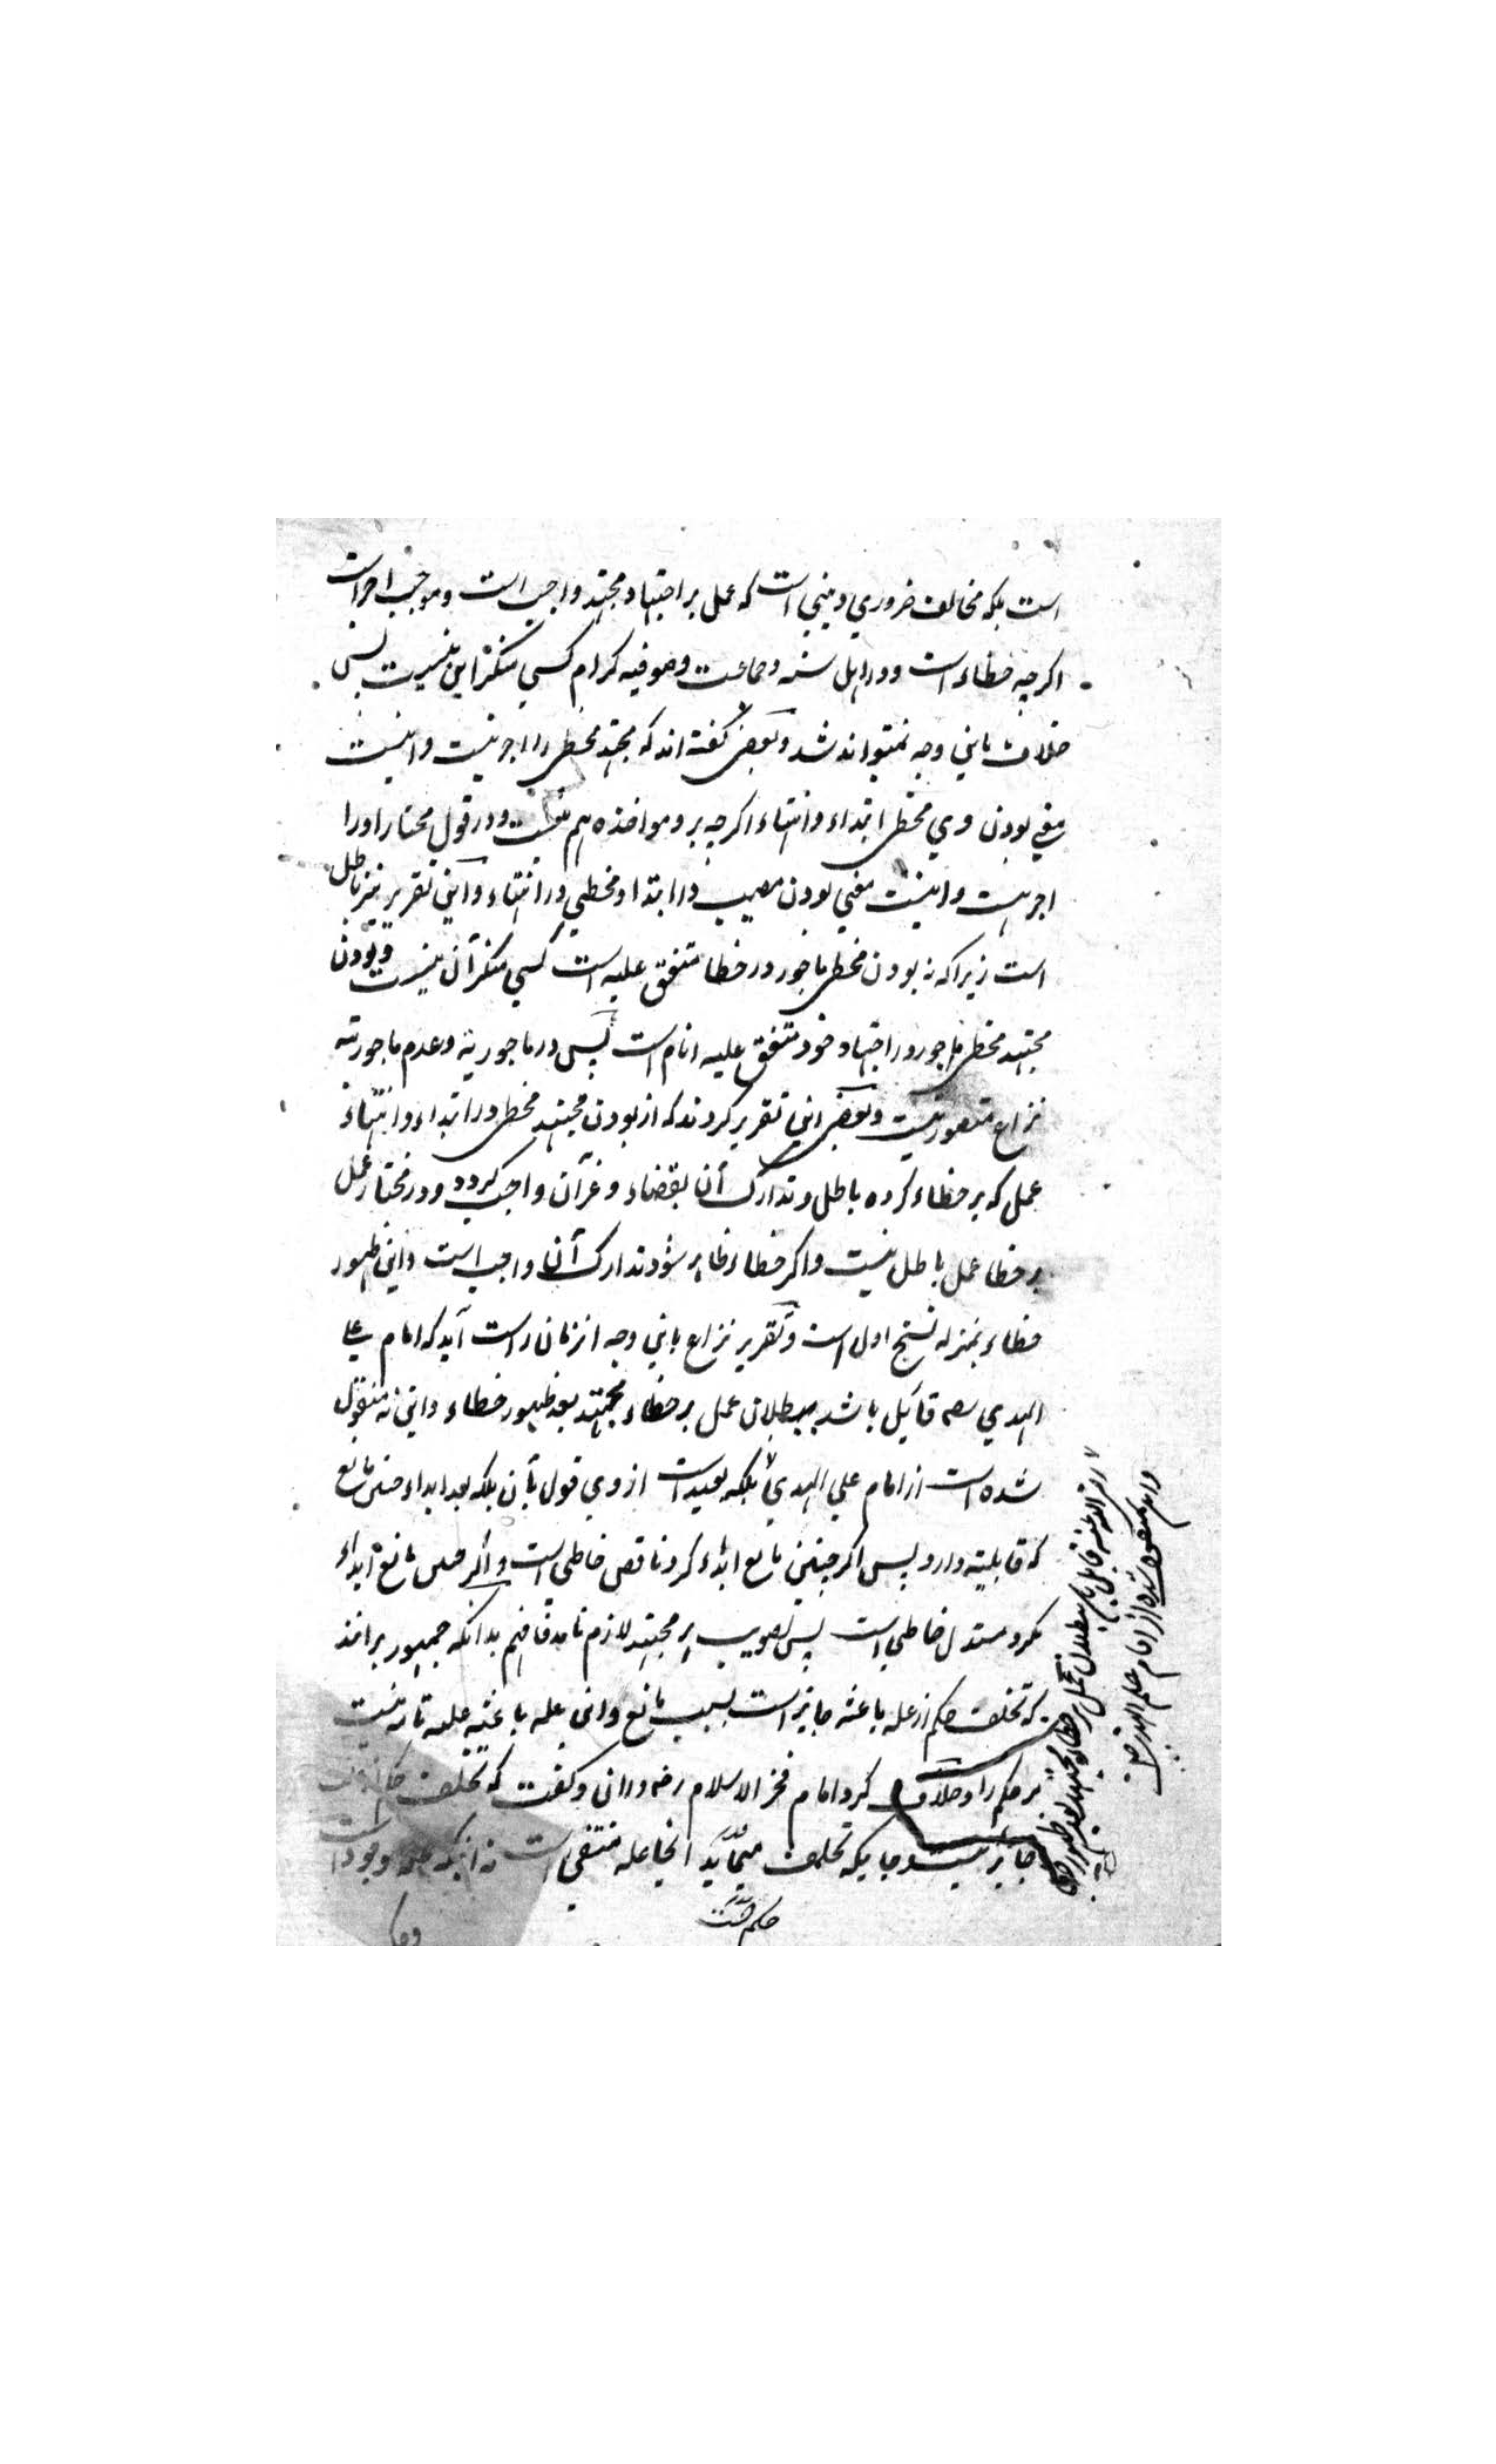 است بلکه مخالف ضروري دینی است که عمل بر اجتهاد مجتهد واجب است و موجب اجر است
اکرچه خطاء است و در اهل سنه و جماعت و صوفیه کرام کسي منکر این نیست پس
خلاف باین وجه نمیتواند شد و بعضی کفته اند که مجتهد مخطی را اجر نیست و اینست
معني بودن وي مخطی ابتداء و انتهاء اکرچه برو مواخذه هم نیست و در قول مختار او را
اجر هست و اینست معني بودن مصیب در ابتدا و مخطي در انتهاء و این تقریر نیز باطل
است زیرا که نه بودن مخطی ماجور در خطا متفق علیه است کسي منکر آن نیست و بودن
مجتهد مخطی ماجور در اجتهاد خود متفق علیه انام است پس در ماجوریة و عدم ماجوریة
نزاع متصور نیست و بعضی این تقریر کردند که از بودن مجتهد مخطی در ابتداء و انتهاء
عمل که بر خطاء کرده باطل و تدارک آن بقضاء و غرآن واجب کردد و در مختار عمل
بر خطا عمل باطل نیست و اکر خطاء ظاهر شود تدارک آن واجب است و این ظهور
خطاء بمنزله نسخ اول است و تقریر نزاع باین وجه ازمان راست آید که امام علي
الهدي رضه قائل باشد ببطلان عمل بر خطاء مجتهد بعد ظهور خطاء و این نه منقول
شده است از امام علي الهدي بلکه بعید است از وي قول بآن بلکه بعد ابداء جنس مانع
که قابلیة دارد پس اکر جنس مانع ابداء کرد ناقص خاطي است و اکر جنس مانع ابداء
نکرد مستدل خاطي است پس تصویب هر مجتهد لازم نامد فافهم بدانکه جمهور برانند
که تخلف حکم از عله باعثه جایز است بسبب مانع و این عله باعثه علة تامه نیست
مر حکم را و خلاف کرد امام فخر الاسلام رضه درانی و کفت که تخلف حکم
جایز نیست و جایکه تخلف مینماید انجا عله منتفي است نه انکه عله موجود است
حکم
رضی الله عنه قایل باشد ببطلان عمل بر خطاء مجتهد بعد ظهور خطا
و این منقول شده از امام علم الهدی رض